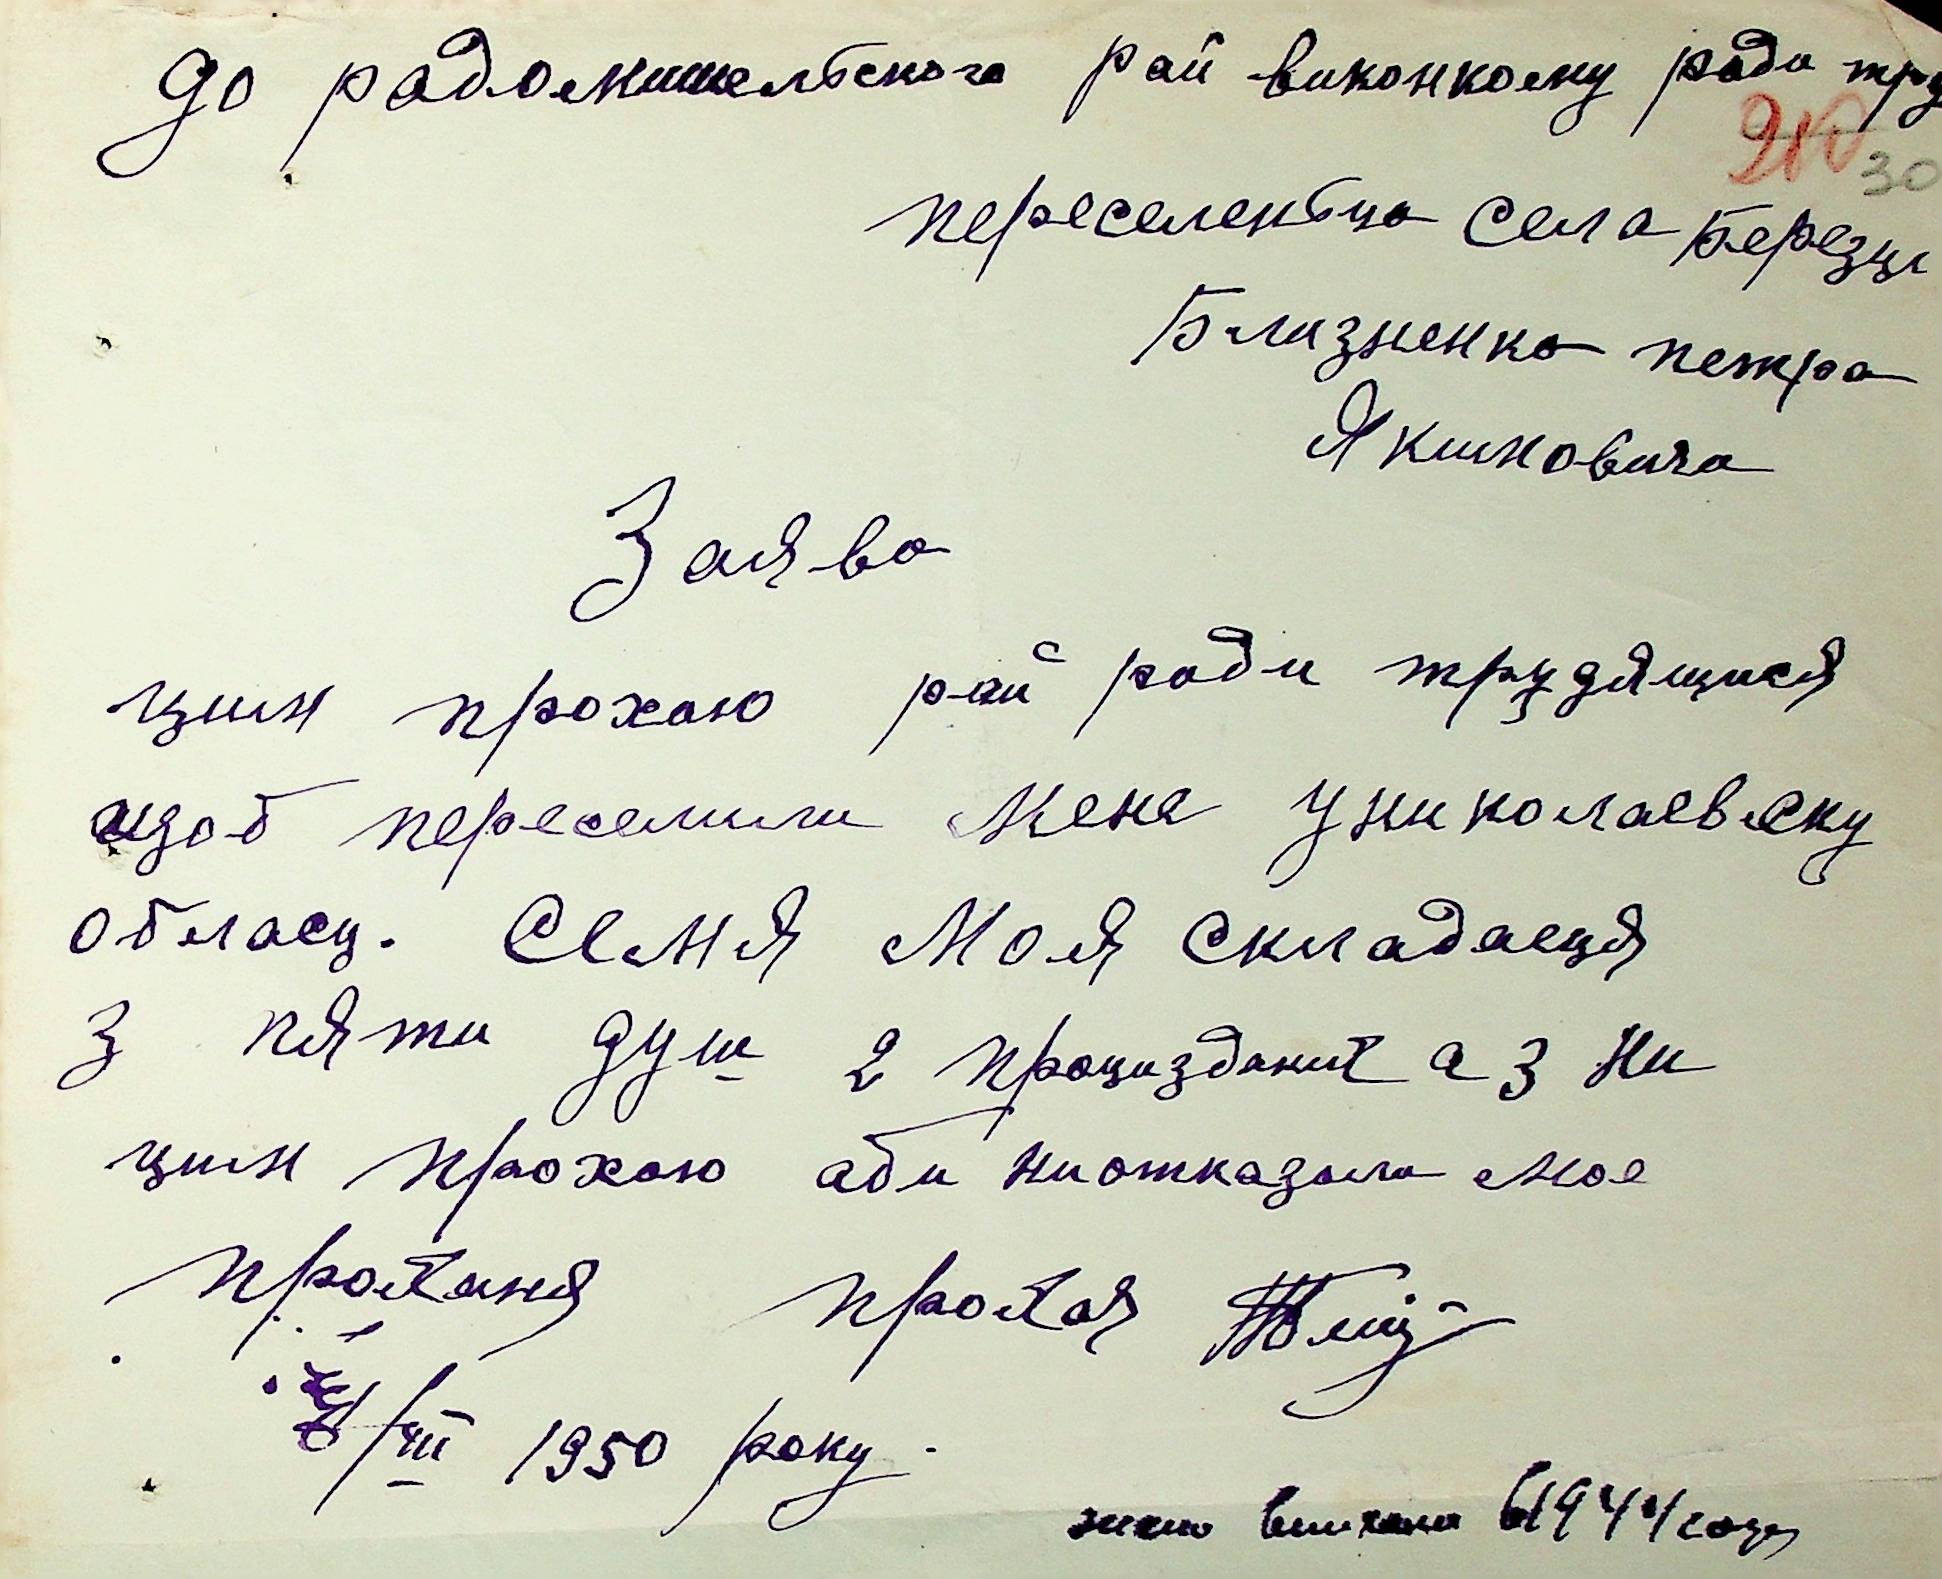 до радомишельского рай виконкому ради тру
210
30
переселеньца села Березці
Близненко петра
Якимовича
Заява
цим прохаю рай ради трудящися
щоб переселили мене униколаевску
обласц. Семя моя складаеця
з пяти душ 2 працизданих а 3 ни
цим прохаю аби ниотказали мое
проханя прохая
/VIII 1950 року.
1944 году